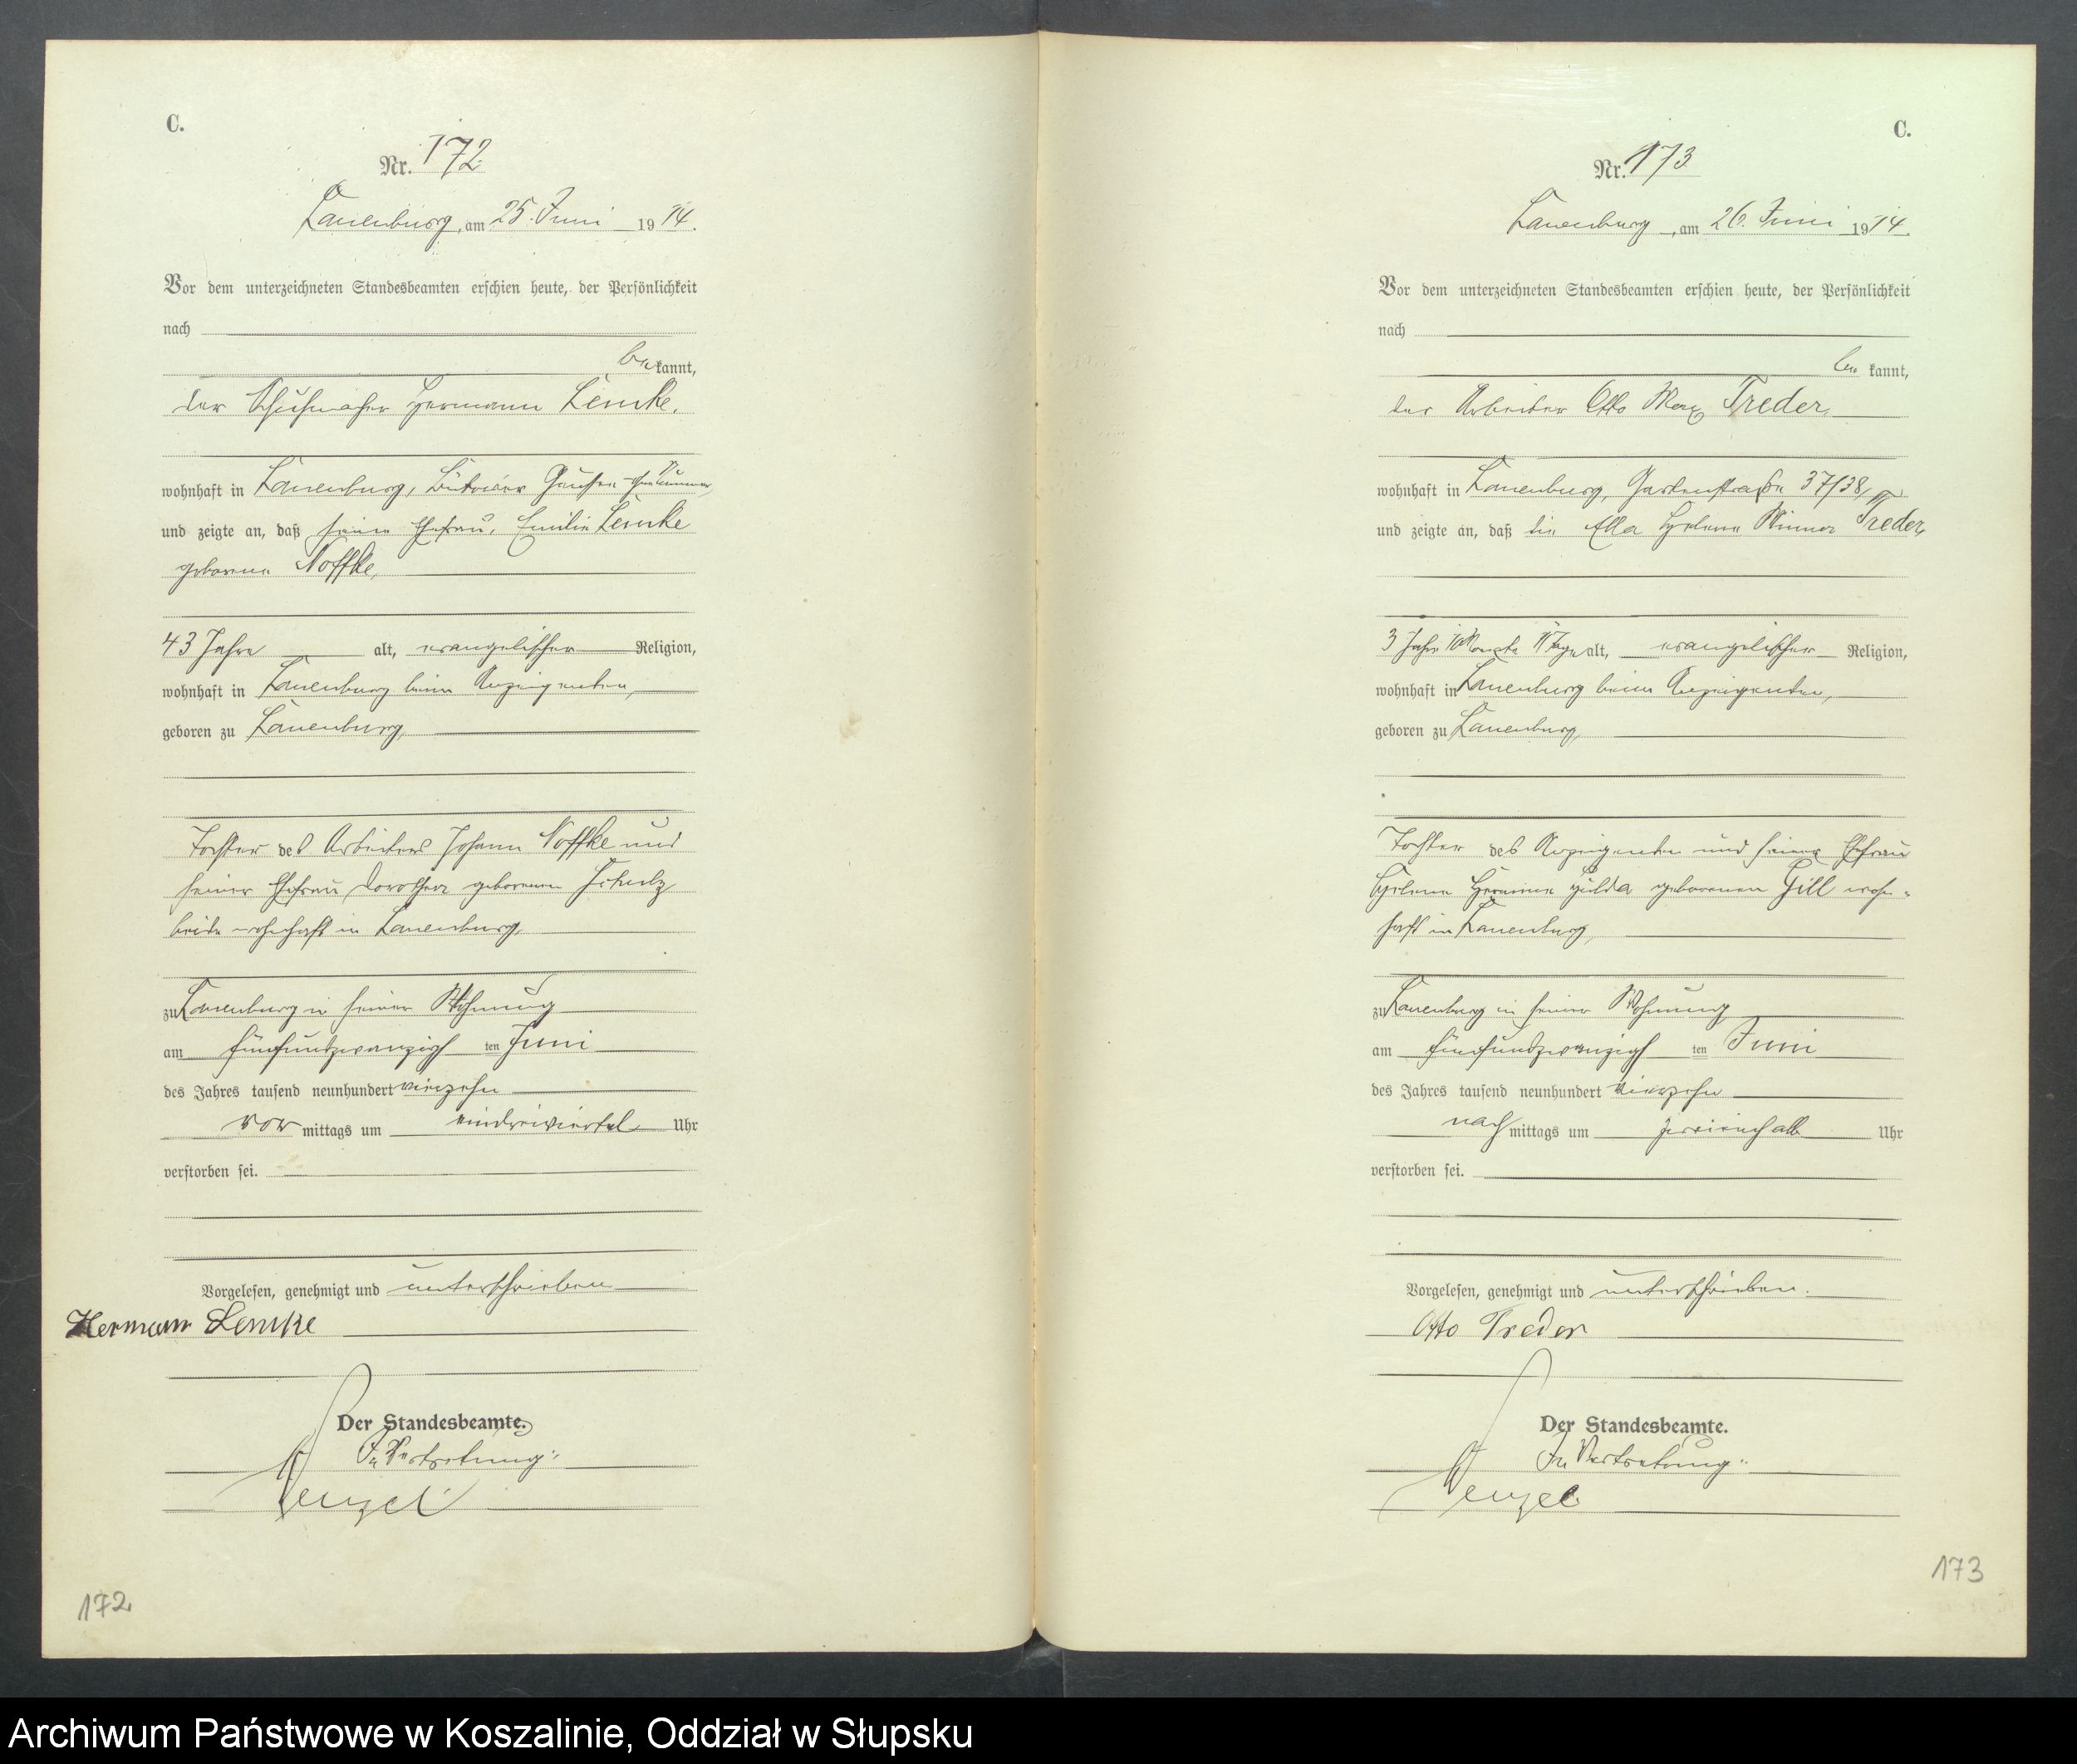 C.
Nr. 172
Lauenburg, am 25. Juni 1914.
Vor dem unterzeichneten Standesbeamten erschien heute, der Persönlichkeit
nach
be kannt,
der Schuhmacher Hermann Lemke,
wohnhaft in Lauenburg, Bütower
und zeigte an, daß seine Ehefrau, Emilie Lemke
geborene Noffke,
43 Jahre alt, evangelischer Religion,
wohnhaft in Lauenburg beim Anzeigenden,
geboren zu Lauenburg,
Tochter des Arbeiters Johann Noffke und
seiner Ehefrau Dorothea geborenen Schulz
beide wohnhaft in Lauenburg,
zu Lauenburg in seiner Wohnung
am fünfundzwanzigsten Juni
des Jahres tausend neunhundert vierzehn
vor mittags um eindreiviertel Uhr
verstorben sei.
Vorgelesen, genehmigt und unterschrieben
Hermann Lemke
Der Standesbeamte.
In Vertretung:
Wenzel
172
C.
Nr. 173
Lauenburg, am 26. Juni 1914.
Vor dem unterzeichneten Standesbeamten erschien heute, der Persönlichkeit
nach
be kannt,
der Arbeiter Otto Max Treder,
wohnhaft in Lauenburg, Gartenstraße 37/38,
und zeigte an, daß die Ella Helene Minna Treder,
3 Jahre 10 Monate alt, evangelischer Religion,
wohnhaft in Lauenburg beim Anzeigenden,
geboren zu Lauenburg,
Tochter des Anzeigenden und seiner Ehefrau
Helene Hulda geborenen Gill wohn-
haft in Lauenburg,
zu Lauenburg in seiner Wohnung
am fünfundzwanzigsten Juni
des Jahres tausend neunhundert vierzehn
nach mittags um zweieinhalb Uhr
verstorben sei.
Vorgelesen, genehmigt und unterschrieben.
Otto Treder
Der Standesbeamte.
In Vertretung:
Wenzel
173
Archiwum Państwowe w Koszalinie, Oddział w Słupsku